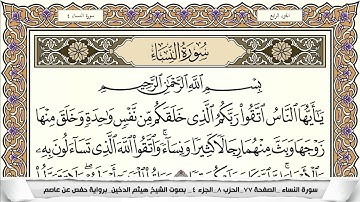 الجزء الرابع
سورة النساء ٤
سُورَةُ النِّسَاءِ
بِسْمِ ٱللَّهِ ٱلرَّحْمَٰنِ ٱلرَّحِيمِ
يَٰٓأَيُّهَا ٱلنَّاسُ ٱتَّقُوا۟ رَبَّكُمُ ٱلَّذِى خَلَقَكُم مِّن نَّفْسٍ وَٰحِدَةٍ وَخَلَقَ مِنْهَا
زَوْجَهَا وَبَثَّ مِنْهُمَا رِجَالًا كَثِيرًا وَنِسَآءً ۚ وَٱتَّقُوا۟ ٱللَّهَ ٱلَّذِى تَسَآءَلُونَ بِهِۦ
سورة النساء _الصفحة ٧٧_الحزب ٨_الجزء ٤_ بصوت الشيخ هيثم الدخين_برواية حفص عن عاصم